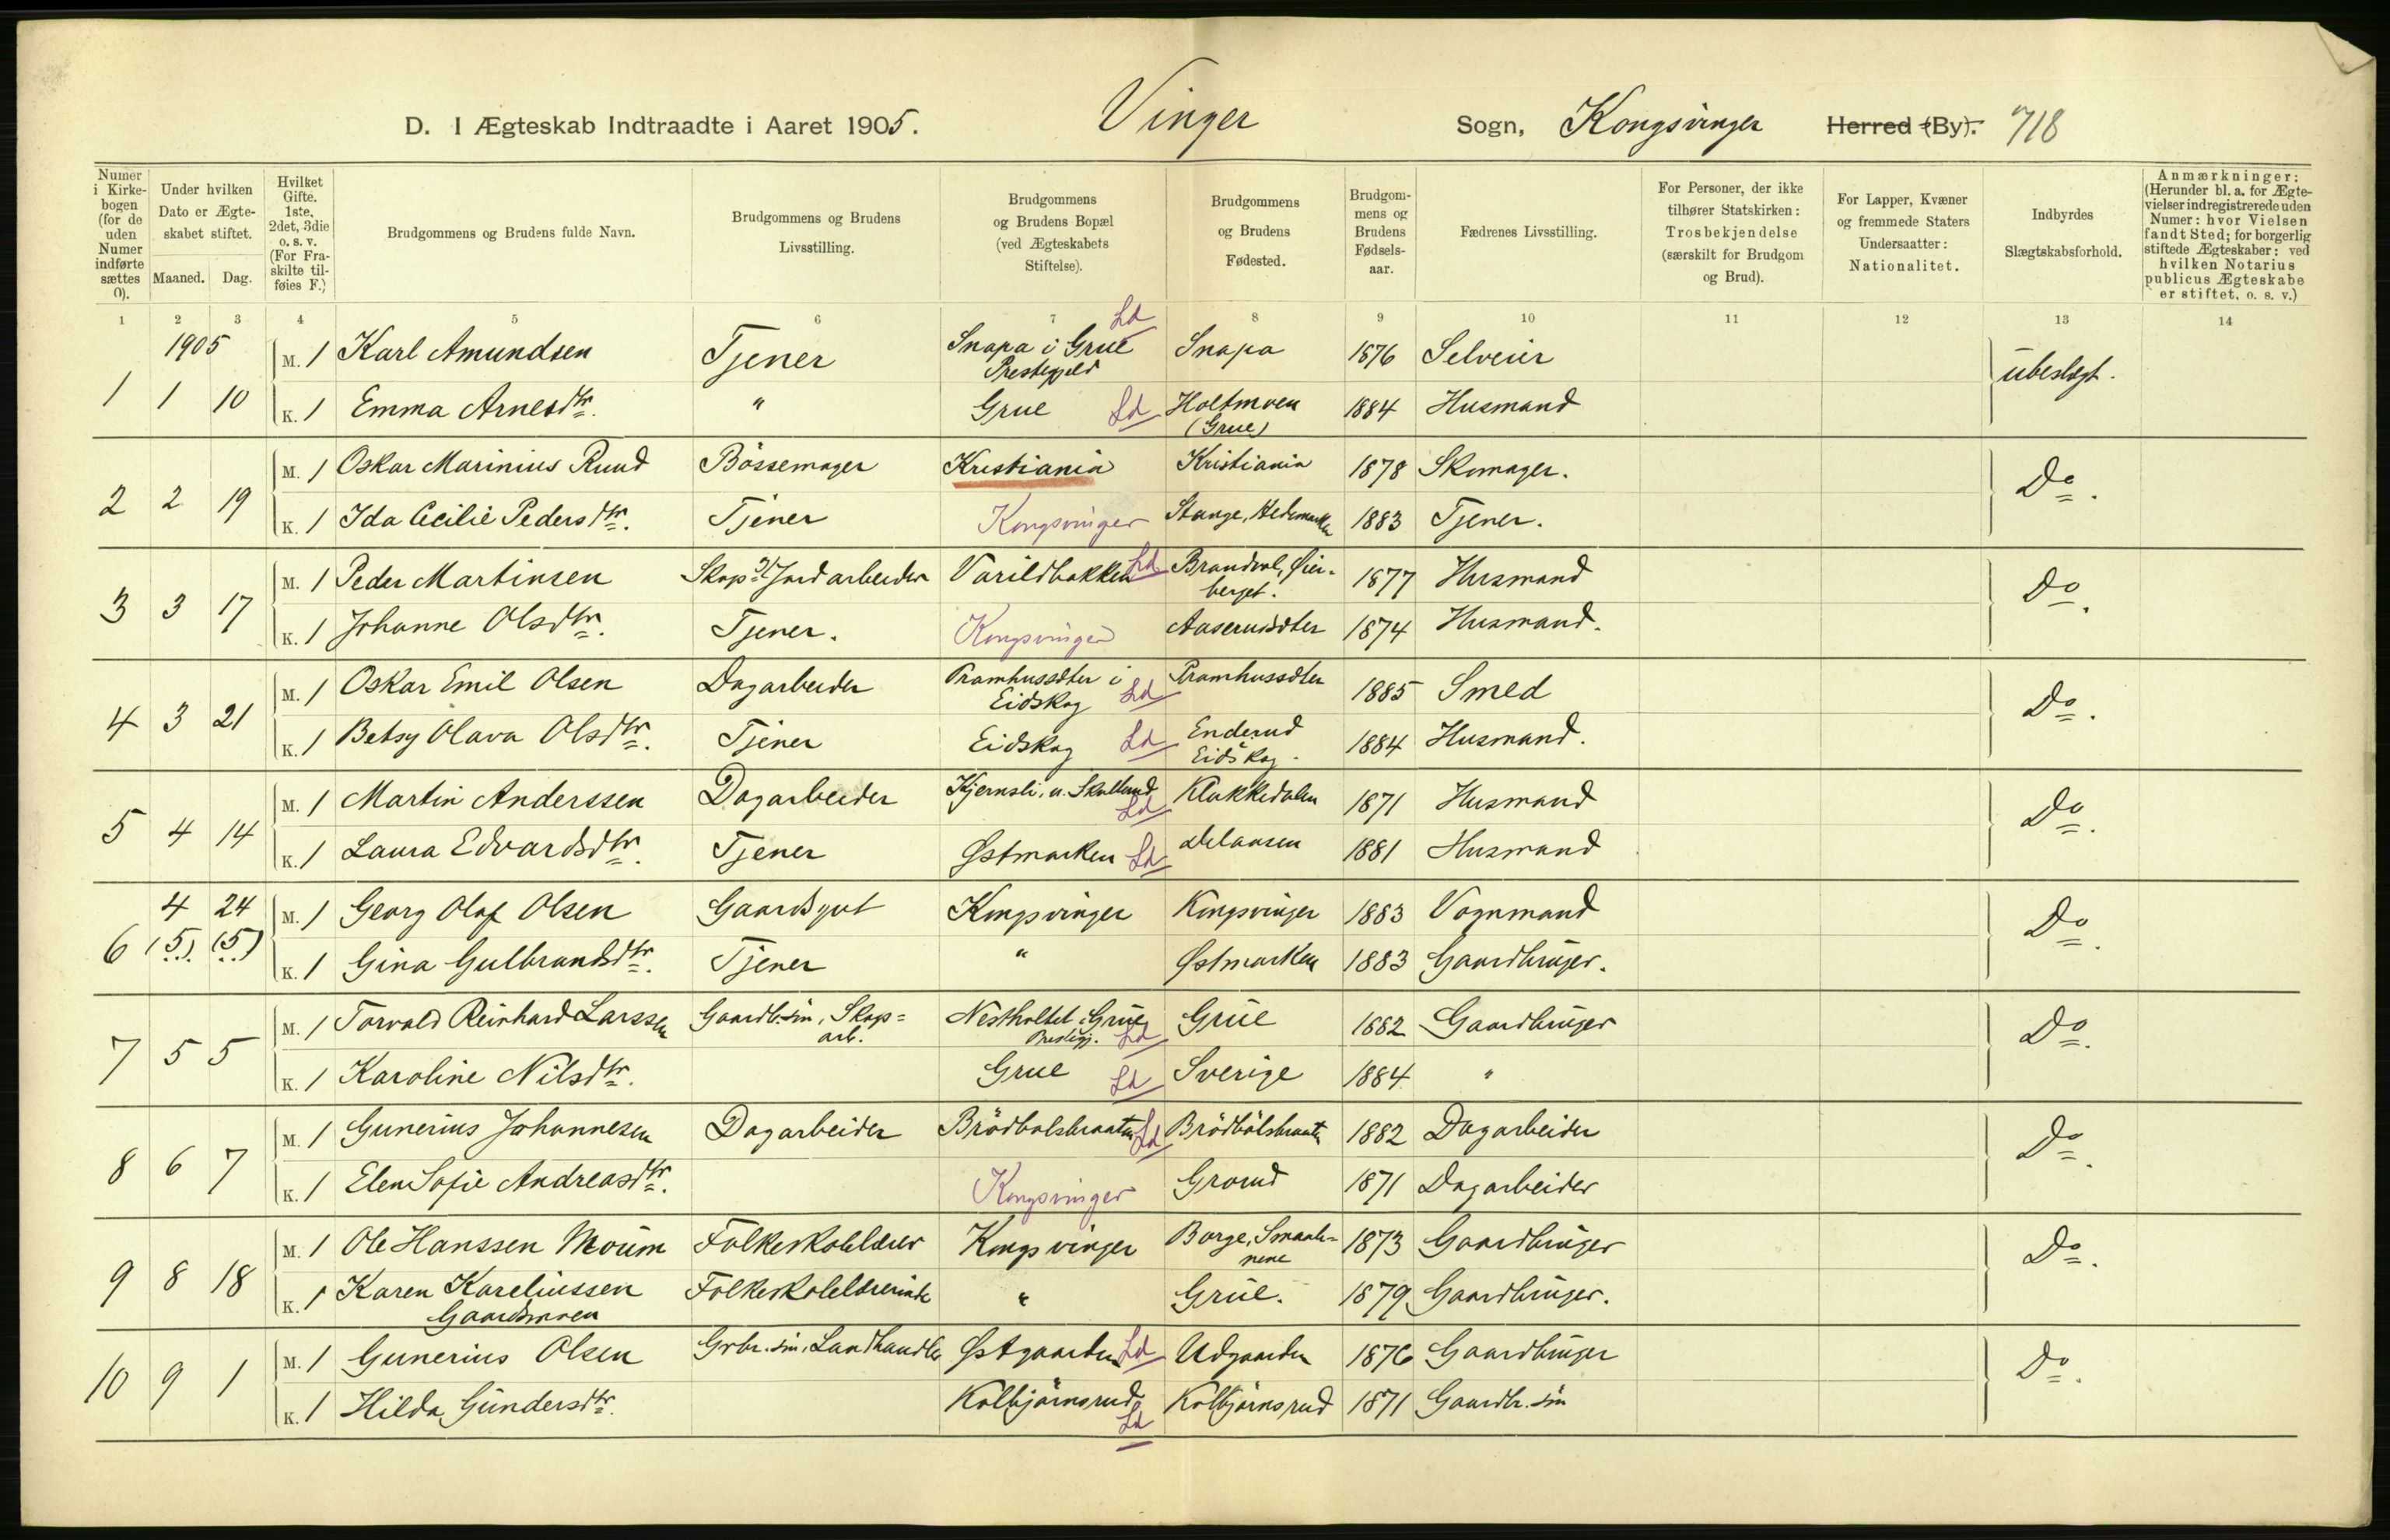 D. I Ægteskab Indtraadte i Aaret 1905. Vinger Sogn, Kongsvinger Herred (By). 718
Numer i Kirkebogen (for de uden Numer indførte sættes 0).
Under hvilken Dato er Ægteskabet stiftet.
Maaned. Dag.
Hvilket Gifte. 1ste, 2det, 3die o. s. v. (For Fraskilte tilføies F.)
Brudgommens og Brudens fulde Navn.
Brudgommens og Brudens Livsstilling.
Brudgommens og Brudens Bopæl (ved Ægteskabets Stiftelse).
Brudgommens og Brudens Fødested.
Brudgommens og Brudens Fødselsaar.
Fædrenes Livsstilling.
For Personer, der ikke tilhører Statskirken: Trosbekjendelse (særskilt for Brudgom og Brud).
For Lapper, Kvæner og fremmede Staters Undersaatter: Nationalitet.
Indbyrdes Slægtskabsforhold.
Anmærkninger: (Herunder bl. a. for Ægtevielser indregistrerede uden Numer: hvor Vielsen fandt Sted; for borgerlig stiftede Ægteskaber: ved hvilken Notarius publicus Ægteskabet er stiftet, o. s. v.)
1 2 3 4 5 6 7 8 9 10 11 12 13 14
1905 M. 1 Karl Amundsen Tjener Snapa i Grue Prestegjeld Ld Snapa 1876 Selveier
1 1 10 K. 1 Emma Arnesdtr. " Grue Ld Holtmoen (Grue) 1884 Husmand ubeslægt.
M. 1 Oskar Marinius Ruud Bössemager Kristiania Kristiania 1878 Skomager.
2 2 19 K. 1 Ida Cecilie Pedersdtr. Tjener Kongsvinger Stange, Hedemarken 1883 Tjener. Do.
M. 1 Peder Martinsen Skog- Jordarbeider Varildbakken Ld Brandval, Øierberget. 1877 Husmand
3 3 17 K. 1 Johanne Olsdtr. Tjener. Kongsvinger Aaserudsdter 1874 Husmand. Do.
M. 1 Oskar Emil Olsen Dagarbeider Pramhussdter i Eidskog Ld Pramhussdter 1885 Smed
4 3 21 K. 1 Betsy Olava Olsdtr. Tjener Eidskog Ld Enderud Eidskog. 1884 Husmand. Do.
M. 1 Martin Anderssen Dagarbeider Kjernsli, u. Skulland Ld Klokkedalen 1871 Husmand
5 4 14 K. 1 Laura Edvardsdtr. Tjener Østmarken Ld 1881 Husmand Do.
4 24 M. 1 Georg Olaf Olsen Gaardsgut Kongsvinger Kongsvinger 1883 Vognmand
6 (5) (5) K. 1 Gina Gulbrandsdtr. Tjener " Østmarken 1883 Gaardbruger. Do.
M. 1 Torvald Reinhard Larssen Gaardb. søn, Skogarb. Nestholtet i Grue Prestegj. Ld Grue 1882 Gaardbruger
7 5 5 K. 1 Karoline Nilsdtr. Grue Ld Sverige 1884 " Do.
M. 1 Gunerius Johannesen Dagarbeider Brödbolsbraaten Ld Brödbölsbraaten 1882 Dagarbeider
8 6 7 K. 1 Elen Sofie Andreasdtr. Kongsvinger Grorud 1871 Dagarbeider Do.
M. 1 Ole Hanssen Moum Folkeskolelærer Kongsvinger Borge, Smaalenene 1873 Gaardbruger
9 8 18 K. 1 Karen Kareliussen Gaardsmoen Folkeskolelærerinde " Grue. 1879 Gaardbruger. Do.
M. 1 Gunerius Olsen Grbr. søn, Landhandler Østgaarden Ld Udgaarden 1876 Gaardbruger
10 9 1 K. 1 Hilda Gundersdtr. Kolbjørnsrud Ld Kolbjørnsrud 1871 Gaardbr. søn Do.